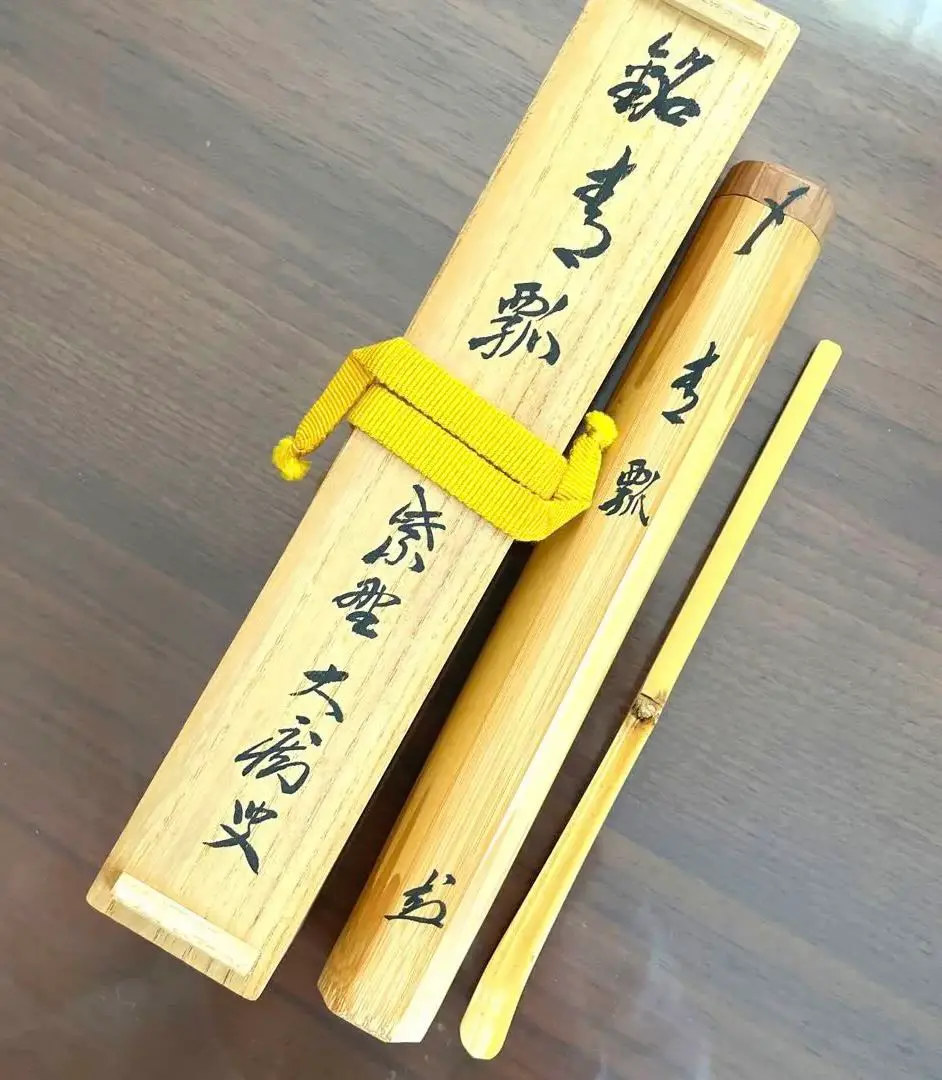 銘 青瓢
紫野 大 叟
〆
青瓢